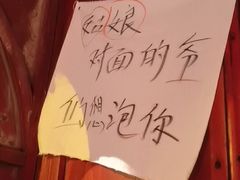 姑娘
对面的爷
们想泡你